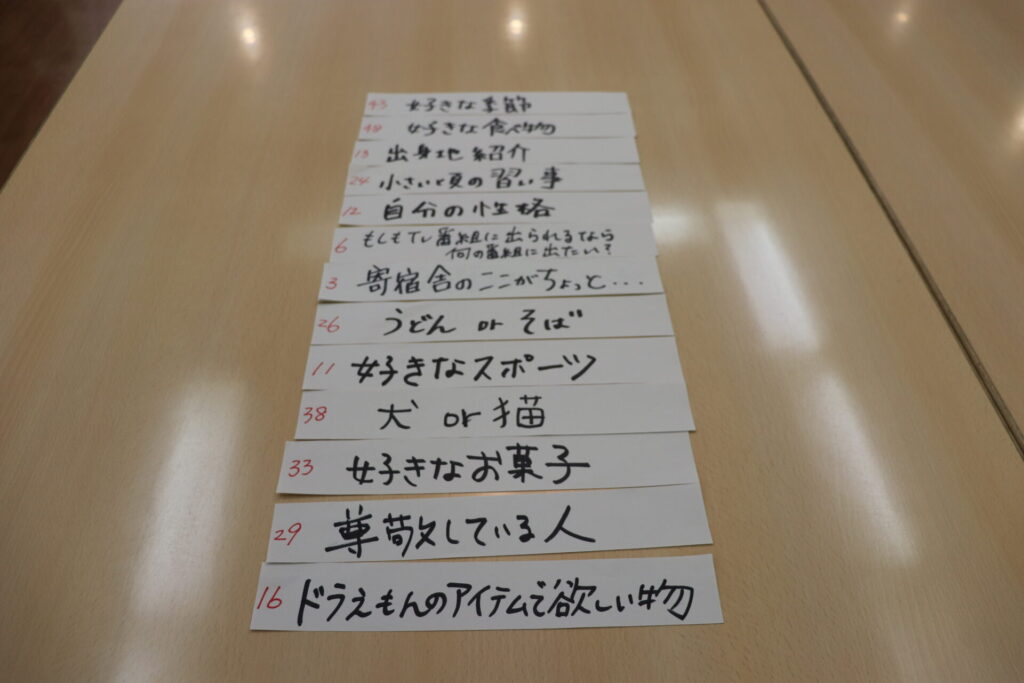 43 好きな季節
48 好きな食べ物
13 出身地紹介
24 小さい頃の習い事
12 自分の性格
6 もしもTV番組に出られるなら
何の番組に出たい？
3 寄宿舎のここがちょっと・・・
26 うどん or そば
11 好きなスポーツ
38 犬 or 猫
33 好きなお菓子
29 尊敬している人
16 ドラえもんのアイテムで欲しい物